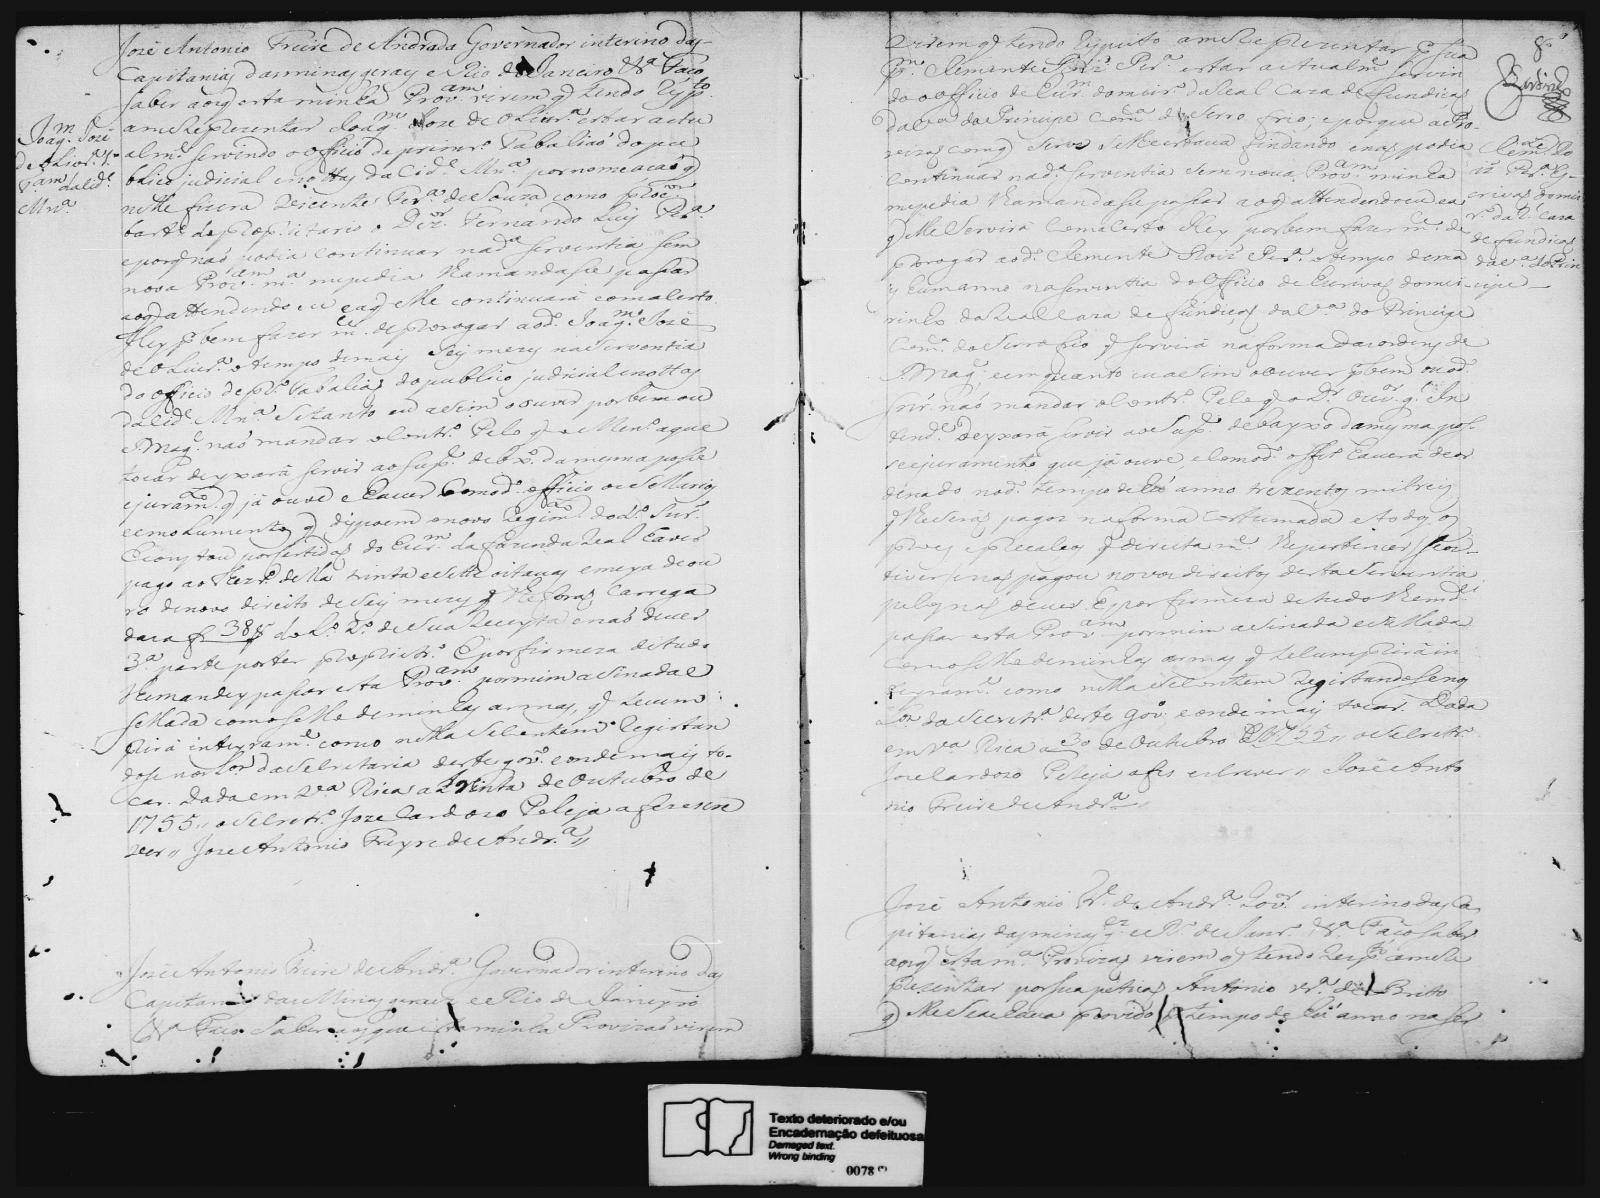 José Antonio Freire de Andrada Governador interino das
Capitanias das minas geraes e Rio de Janeiro &ª Faço
saber aos q esta minha Prov.am virem q tendo resp.to
a me Reprezentar Joaq.m Joze de Oliur.ª estar actu
alm.e servindo o officio de primr.º Tabaliaó do pu
blico judicial e nottas da Cid.e Mn.ª por nomeacaó q
nelle fizera Vicente Per.ª de Souza como
do proprietario o Dez.or Fernando Luis Per.ª
e porq naó podia continuar na d.ª serventia sem
nova Prov.am m.ª me pedia lha mandase pasar
ao q attendendo eu e a q lhe continuará com acerto
Hey p bem fazer m.e de prorogar ao d.º Joaq.m José
de Oliur.ª o tempo de mais seis mezes na serventia
do officio de pr.º Tabaliaó do publico judicial e nottas
da Cid.e Mn.ª se tanto eu asim o ouver por bem ou
S. Mag.e naó mandar o contr.º Pelo q o Men.º a que
tocar deyxará servir ao sup.e de bx.º da mesma pose
e juram.to q já ouve e haverá com o d.º officio os sallarios
e emolumentos q dispoem o novo Regim.to do d.º Sur.
Constou por certidaó do Escr.m da fazenda Real haver
pago ao thezr.º della trinta e sette oitavas e meya de ou
ro de novo direito de seis mezes q lhe foraó carrega
das a f 38 do L.º 2.º de sua receyta e naó dever
3.ª parte por ter proprietr.º E por firmeza de tudo
lhe mandey pasar esta Prov.am por mim asinada e
sellada com o sello de minhas armas, q se cum
prirá inteyram.e como nella se contem registan
dose nos L.os da Secretaria deste gov.º e onde mais to-
car. Dada em V.ª Rica a trinta de Outubro de
1755 o secretr.º Joze Cardozo Peleja a fez escre
ver // Joze Antonio Freyre de Andr.ª //
Joaq.m José
de Oliur.ª
Prov.am da Cid.e
Mn.ª
José Antonio Freire de Andr.ª Governador interino das
Capitanias das Minas geraes e Rio de Janeyro
&ª Faço saber aos que esta minha Provizaó virem
virem q tendo respeito a me Reprezentar p sua
Clemente Roiz Per.ª estar actualm.e servin
do o officio de Escr.m do meir.º da Real Caza de fundicaó
da V.ª do Principe Com.ca do Serro frio; e porque a Pro-
vizaó com q serve se lhe estava findando e naó podia
continuar na d.ª serventia sem nova Prov.am minha
me pedia lha mandase pasar ao q attendendo eu e a
q lhe servirá com acerto Hey por bem fazer m.e de
prorogar ao d.º Clemente Roiz Per.ª o tempo de ma
is hum anno na serventia do officio de Escrivaó do mei
rinho da Real Caza de fundicaó da V.ª do Principe
Com.ca do Serro frio q servirá na forma das ordens de
S. Mag.e emquanto eu asim o ouver p bem ou o d.º
Snr. naó mandar o contr.º Pelo q o Dr. Ouv.or g.l In
tend.e deyxará servir ao sup.e debayxo da mesma pos-
se e juramento que já ouve, e com o d.º off.º haverá de or
denado no d.º tempo de hú anno trezentos mil reis
q lhe seraó pagos na forma costumada e todos os
proes e precalsos q direitam.e lhe pertencer
tiver e naó pagou novos direitos desta serventia
pelos naó dever. E por firmeza de tudo lhe mandei
pasar esta Prov.am por mim asinada e sellada
com o sello de minhas armas q se cumprirá in
teyram.e como nella se contem registandose nos
L.os da secretr.ª deste gov.º e onde mais tocar. Dada
em V.ª Rica a 30 de Outubro de 1755 // o secretr.º
Joze Cardozo Peleja a fes escrever // José Anto
nio Freire de Andr.ª //
8
Clem.te Ro
iz Per.ª Es-
crivaó do mei
r.º da R. caza
de fundicaó
da V.ª do Prin
cipe
José Antonio Fr.e de Andr.ª Gov.or interino das Ca
pitanias das minas g.es e R.º de Janr.º &ª Faço saber
aos q esta m.ª Provizaó virem q tendo resp.to a me
Reprezentar por sua petiçaó Antonio de Brito
q lhe se achava provido p tempo de hú anno na ser
Texto deteriorado e/ou
Encadernação defeituosa
Damaged text.
Wrong binding
0078 (*)